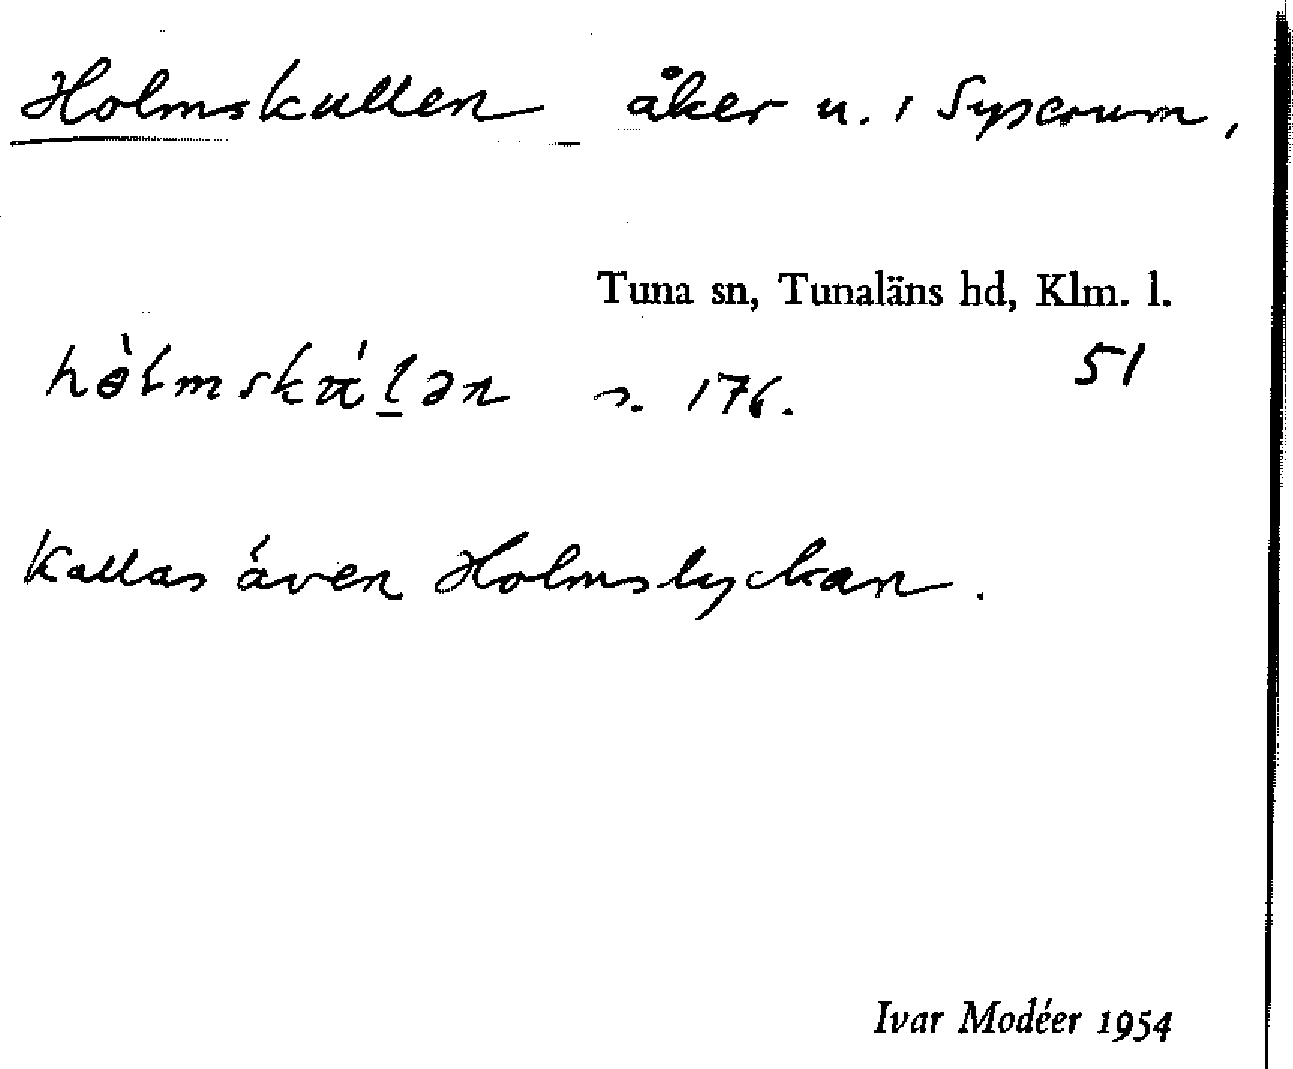 Holmskullen åker u. 1 Sypcrum,
Tuna sn, Tunaläns hd, Klm. l.
51
s. 176.
Kallas även Holmslyckan.
Ivar Modéer 1954